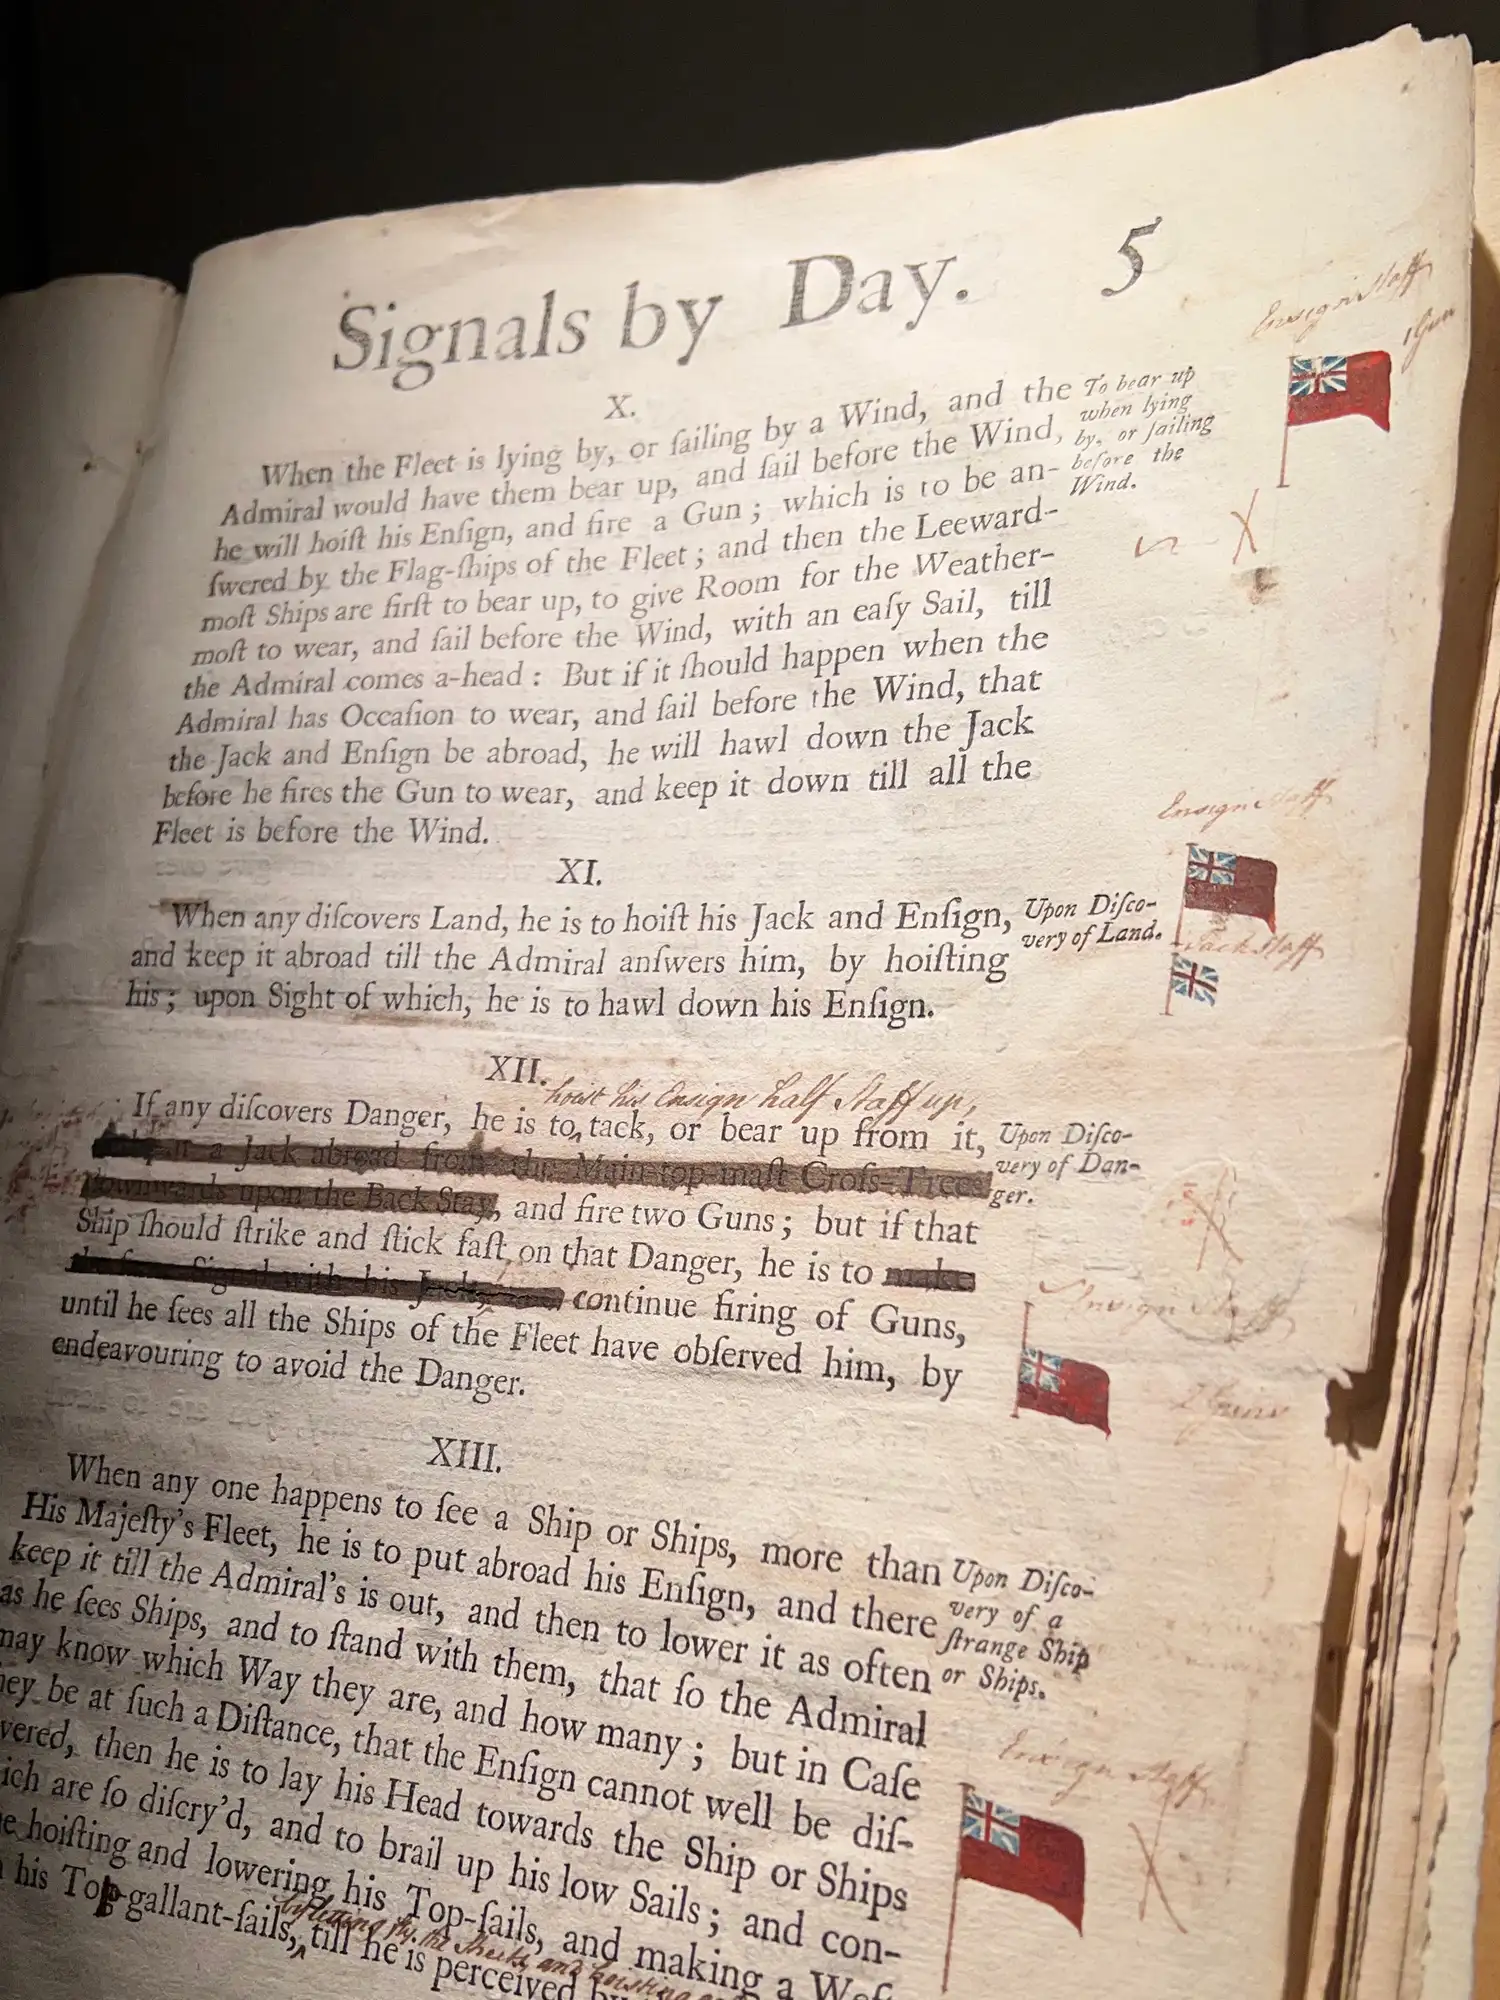 Signals by Day. 5
Ensign Staff
1 Gun
X.
When the Fleet is lying by, or ſailing by a Wind, and the
Admiral would have them bear up, and ſail before the Wind,
he will hoiſt his Enſign, and fire a Gun; which is to be an-
ſwered by the Flag-ſhips of the Fleet; and then the Leeward-
moſt Ships are firſt to bear up, to give Room for the Weather-
moſt to wear, and ſail before the Wind, with an eaſy Sail, till
the Admiral comes a-head: But if it ſhould happen when the
Admiral has Occaſion to wear, and ſail before the Wind, that
the Jack and Enſign be abroad, he will hawl down the Jack
before he fires the Gun to wear, and keep it down till all the
Fleet is before the Wind.
To bear up
when lying
by, or ſailing
before the
Wind.
X
XI.
When any diſcovers Land, he is to hoiſt his Jack and Enſign,
and keep it abroad till the Admiral anſwers him, by hoiſting
his; upon Sight of which, he is to hawl down his Enſign.
Upon Diſco-
very of Land.
Ensign Staff
Jack Staff
XII.
hoist his Ensign half Staff up,
If any diſcovers Danger, he is to‸ tack, or bear up from it,
a Jack abroad from the Main-top-maſt Croſs-Trees
downwards upon the Back Stay, and fire two Guns; but if that
Ship ſhould ſtrike and ſtick faſt on that Danger, he is to make
the ſame Signal with his Jack, continue firing of Guns,
until he ſees all the Ships of the Fleet have obſerved him, by
endeavouring to avoid the Danger.
Upon Diſco-
very of Dan-
ger.
Ensign Staff
2 Guns
XIII.
When any one happens to ſee a Ship or Ships, more than
His Majeſty's Fleet, he is to put abroad his Enſign, and there
keep it till the Admiral's is out, and then to lower it as often
as he ſees Ships, and to ſtand with them, that ſo the Admiral
may know which Way they are, and how many; but in Caſe
they be at ſuch a Diſtance, that the Enſign cannot well be diſ-
vered, then he is to lay his Head towards the Ship or Ships
ich are ſo diſcry'd, and to brail up his low Sails; and con-
hoiſting and lowering his Top-ſails, and making a Wef-
his Top-gallant-ſails,‸ till he is perceived by
by letting fly the Sheets and hoisting
Upon Diſco-
very of a
ſtrange Ship
or Ships.
Ensign Staff
X